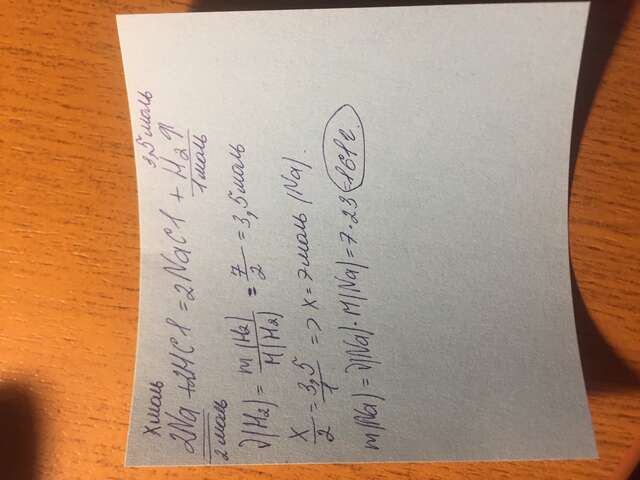 X моль 3,5 моль
2Na + 2HCl = 2NaCl + H₂↑
2 моль 1 моль
ν(H₂) = m(H₂) / M(H₂) = 7/2 = 3,5 моль
X/2 = 3,5/1 => X = 7 моль (Na).
m(Na) = ν(Na) · M(Na) = 7 · 23 = 161 г.